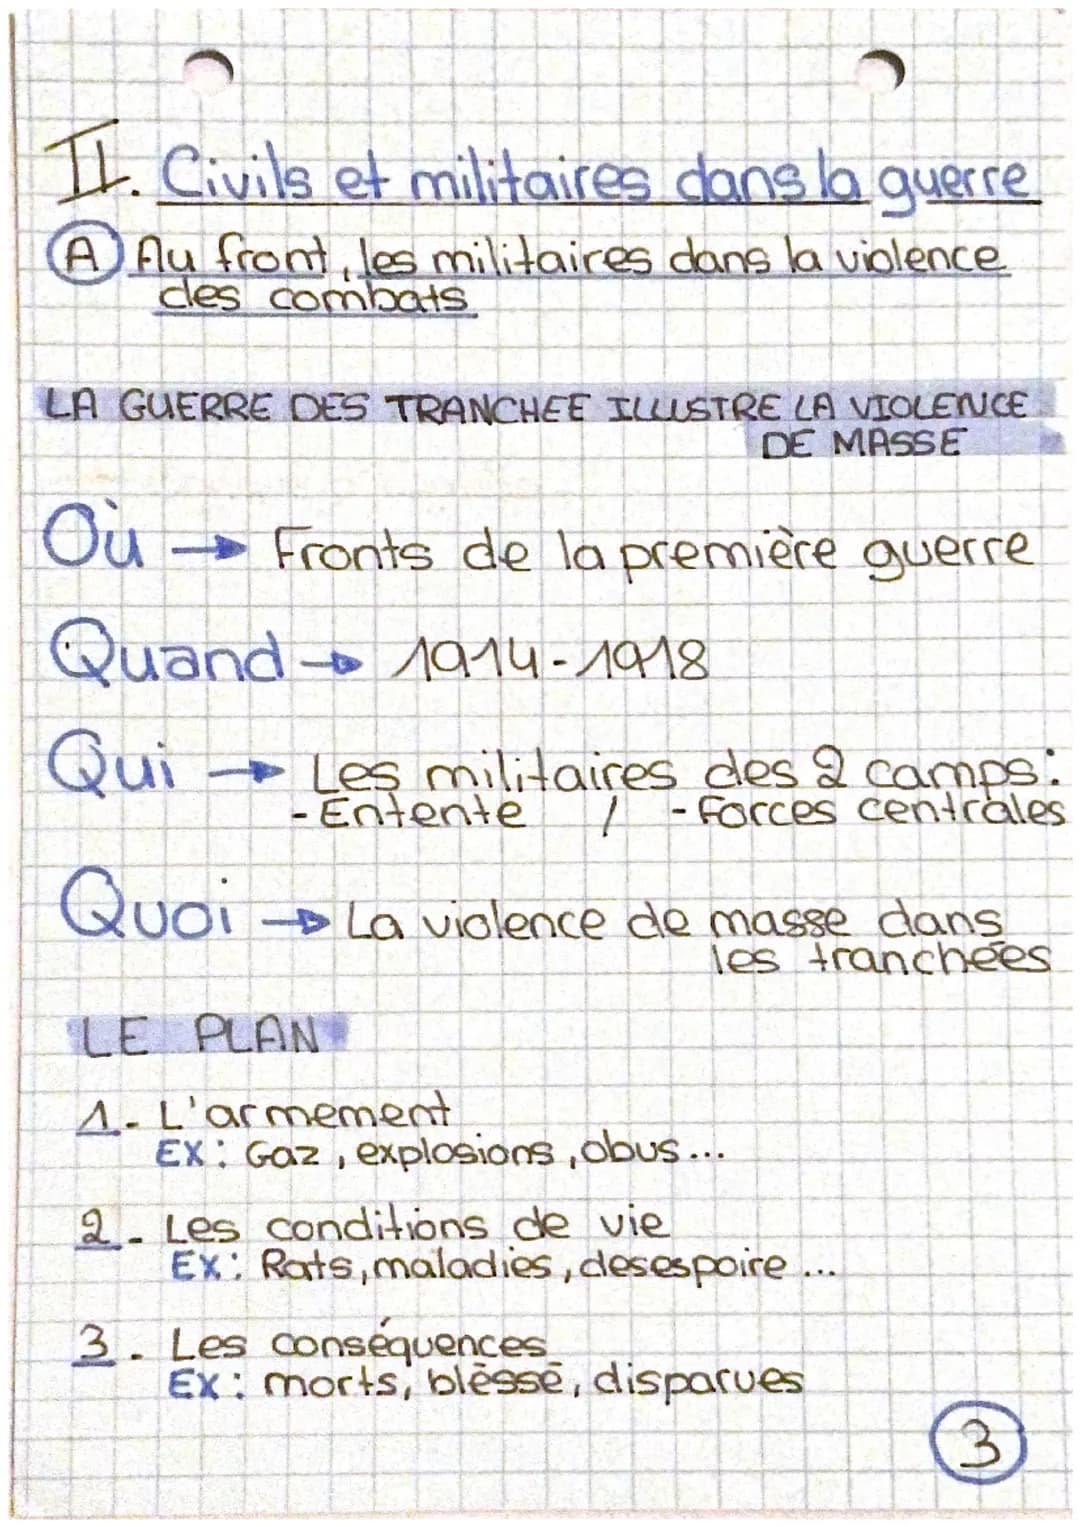 II. Civils et militaires dans la guerre
A Au front, les militaires dans la violence
des combats
LA GUERRE DES TRANCHEE ILLUSTRE LA VIOLENCE
DE MASSE
Où → Fronts de la première guerre
Quand → 1914-1918
Qui → Les militaires des 2 camps:
- Entente / - Forces centrales
Quoi → La violence de masse dans
les tranchées
LE PLAN
1- L'armement
Ex: Gaz, explosions, obus...
2- Les conditions de vie
Ex: Rats, maladies, desespoire ...
3. Les conséquences
Ex: morts, bléssé, disparues
3